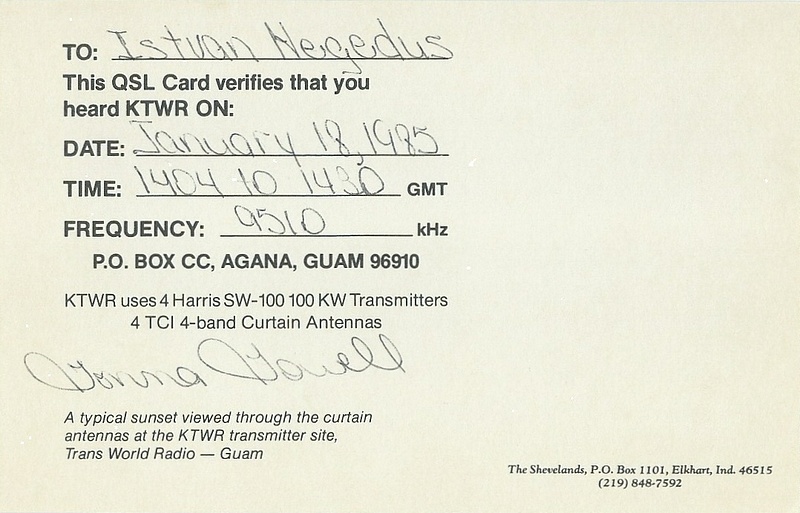 TO: Istvan Hegedus
This QSL Card verifies that you
heard KTWR ON:
DATE: January 18, 1985
TIME: 1404 to 1430 GMT
FREQUENCY: 9510 kHz
P.O. BOX CC, AGANA, GUAM 96910
KTWR uses 4 Harris SW-100 100 KW Transmitters
4 TCI 4-band Curtain Antennas
A typical sunset viewed through the curtain
antennas at the KTWR transmitter site,
Trans World Radio — Guam
The Shevelands, P.O. Box 1101, Elkhart, Ind. 46515
(219) 848-7592